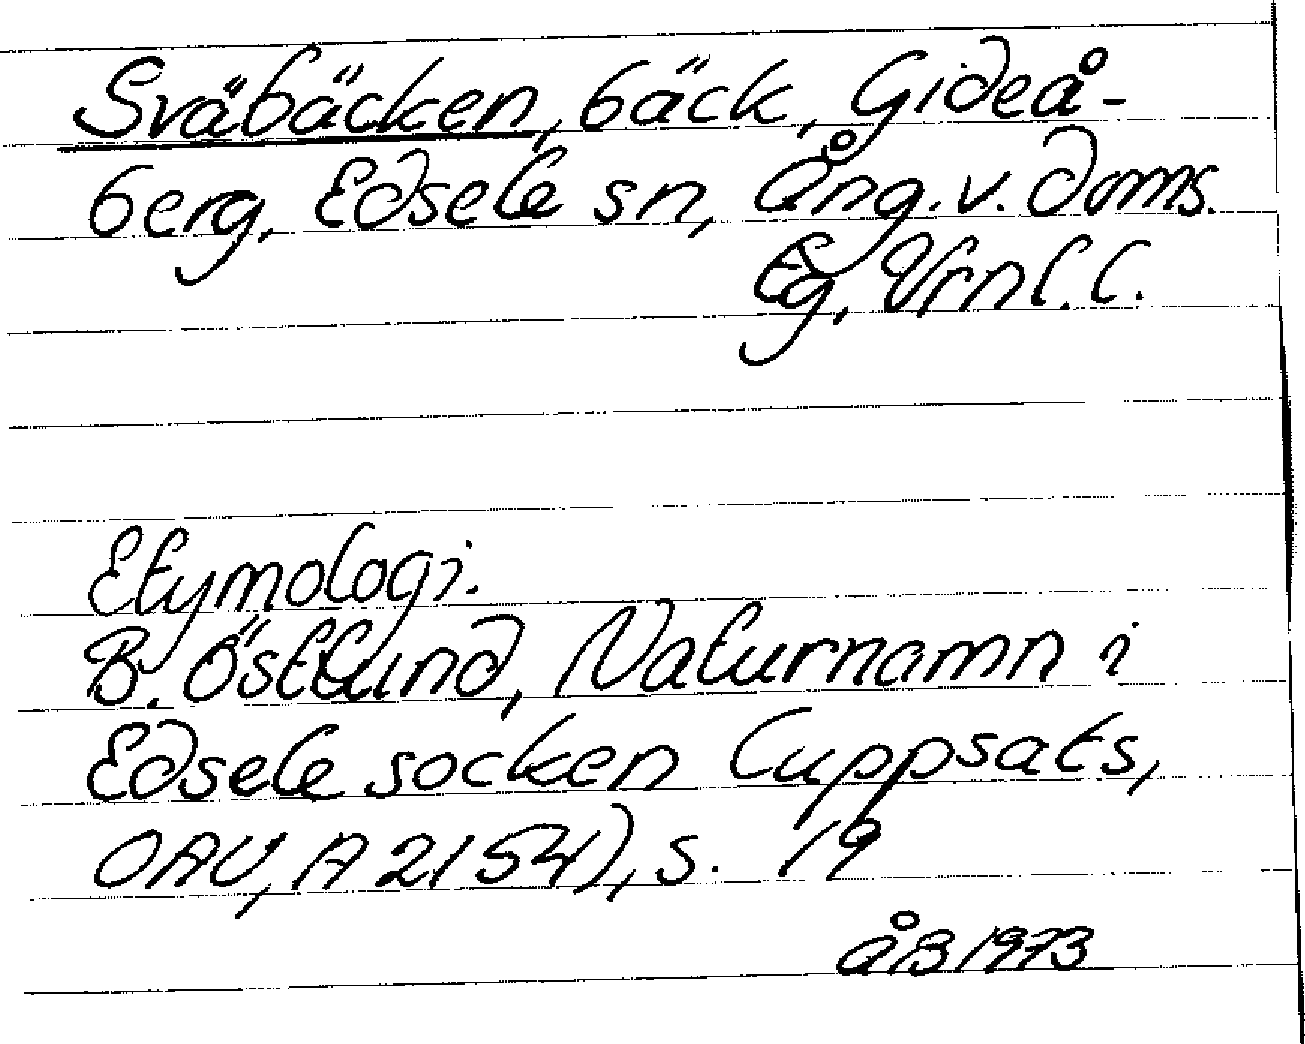 Sväbäcken, bäck, Gideå-
berg, Edsele sn, Ång. v. doms.
Eg, Vrnl. l.
Etymologi.
B. Östlund, Naturnamn i
Edsele socken (uppsats,
OAU, A 2154), s. 19
åB 1973